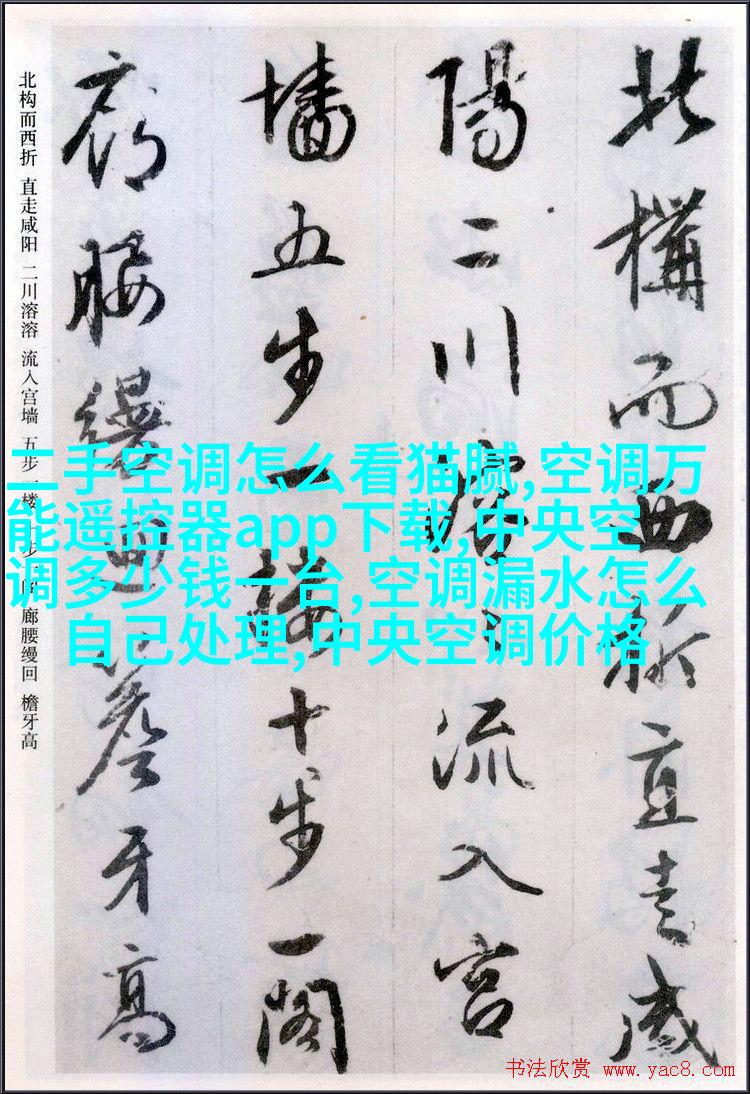 北構而西折直走咸
陽二川溶々流入宫
墻五步一楼十步一閣
廊腰縵迴簷牙高
北构而西折 直走咸阳 二川溶溶 流入宫墙 五步一楼 十步一阁 廊腰缦回 檐牙高
二手空调怎么看猫腻,空调万
能遥控器app下载,中央空
调多少钱一台,空调漏水怎么
自己处理,中央空调价格
书法欣赏 www.yac8.com